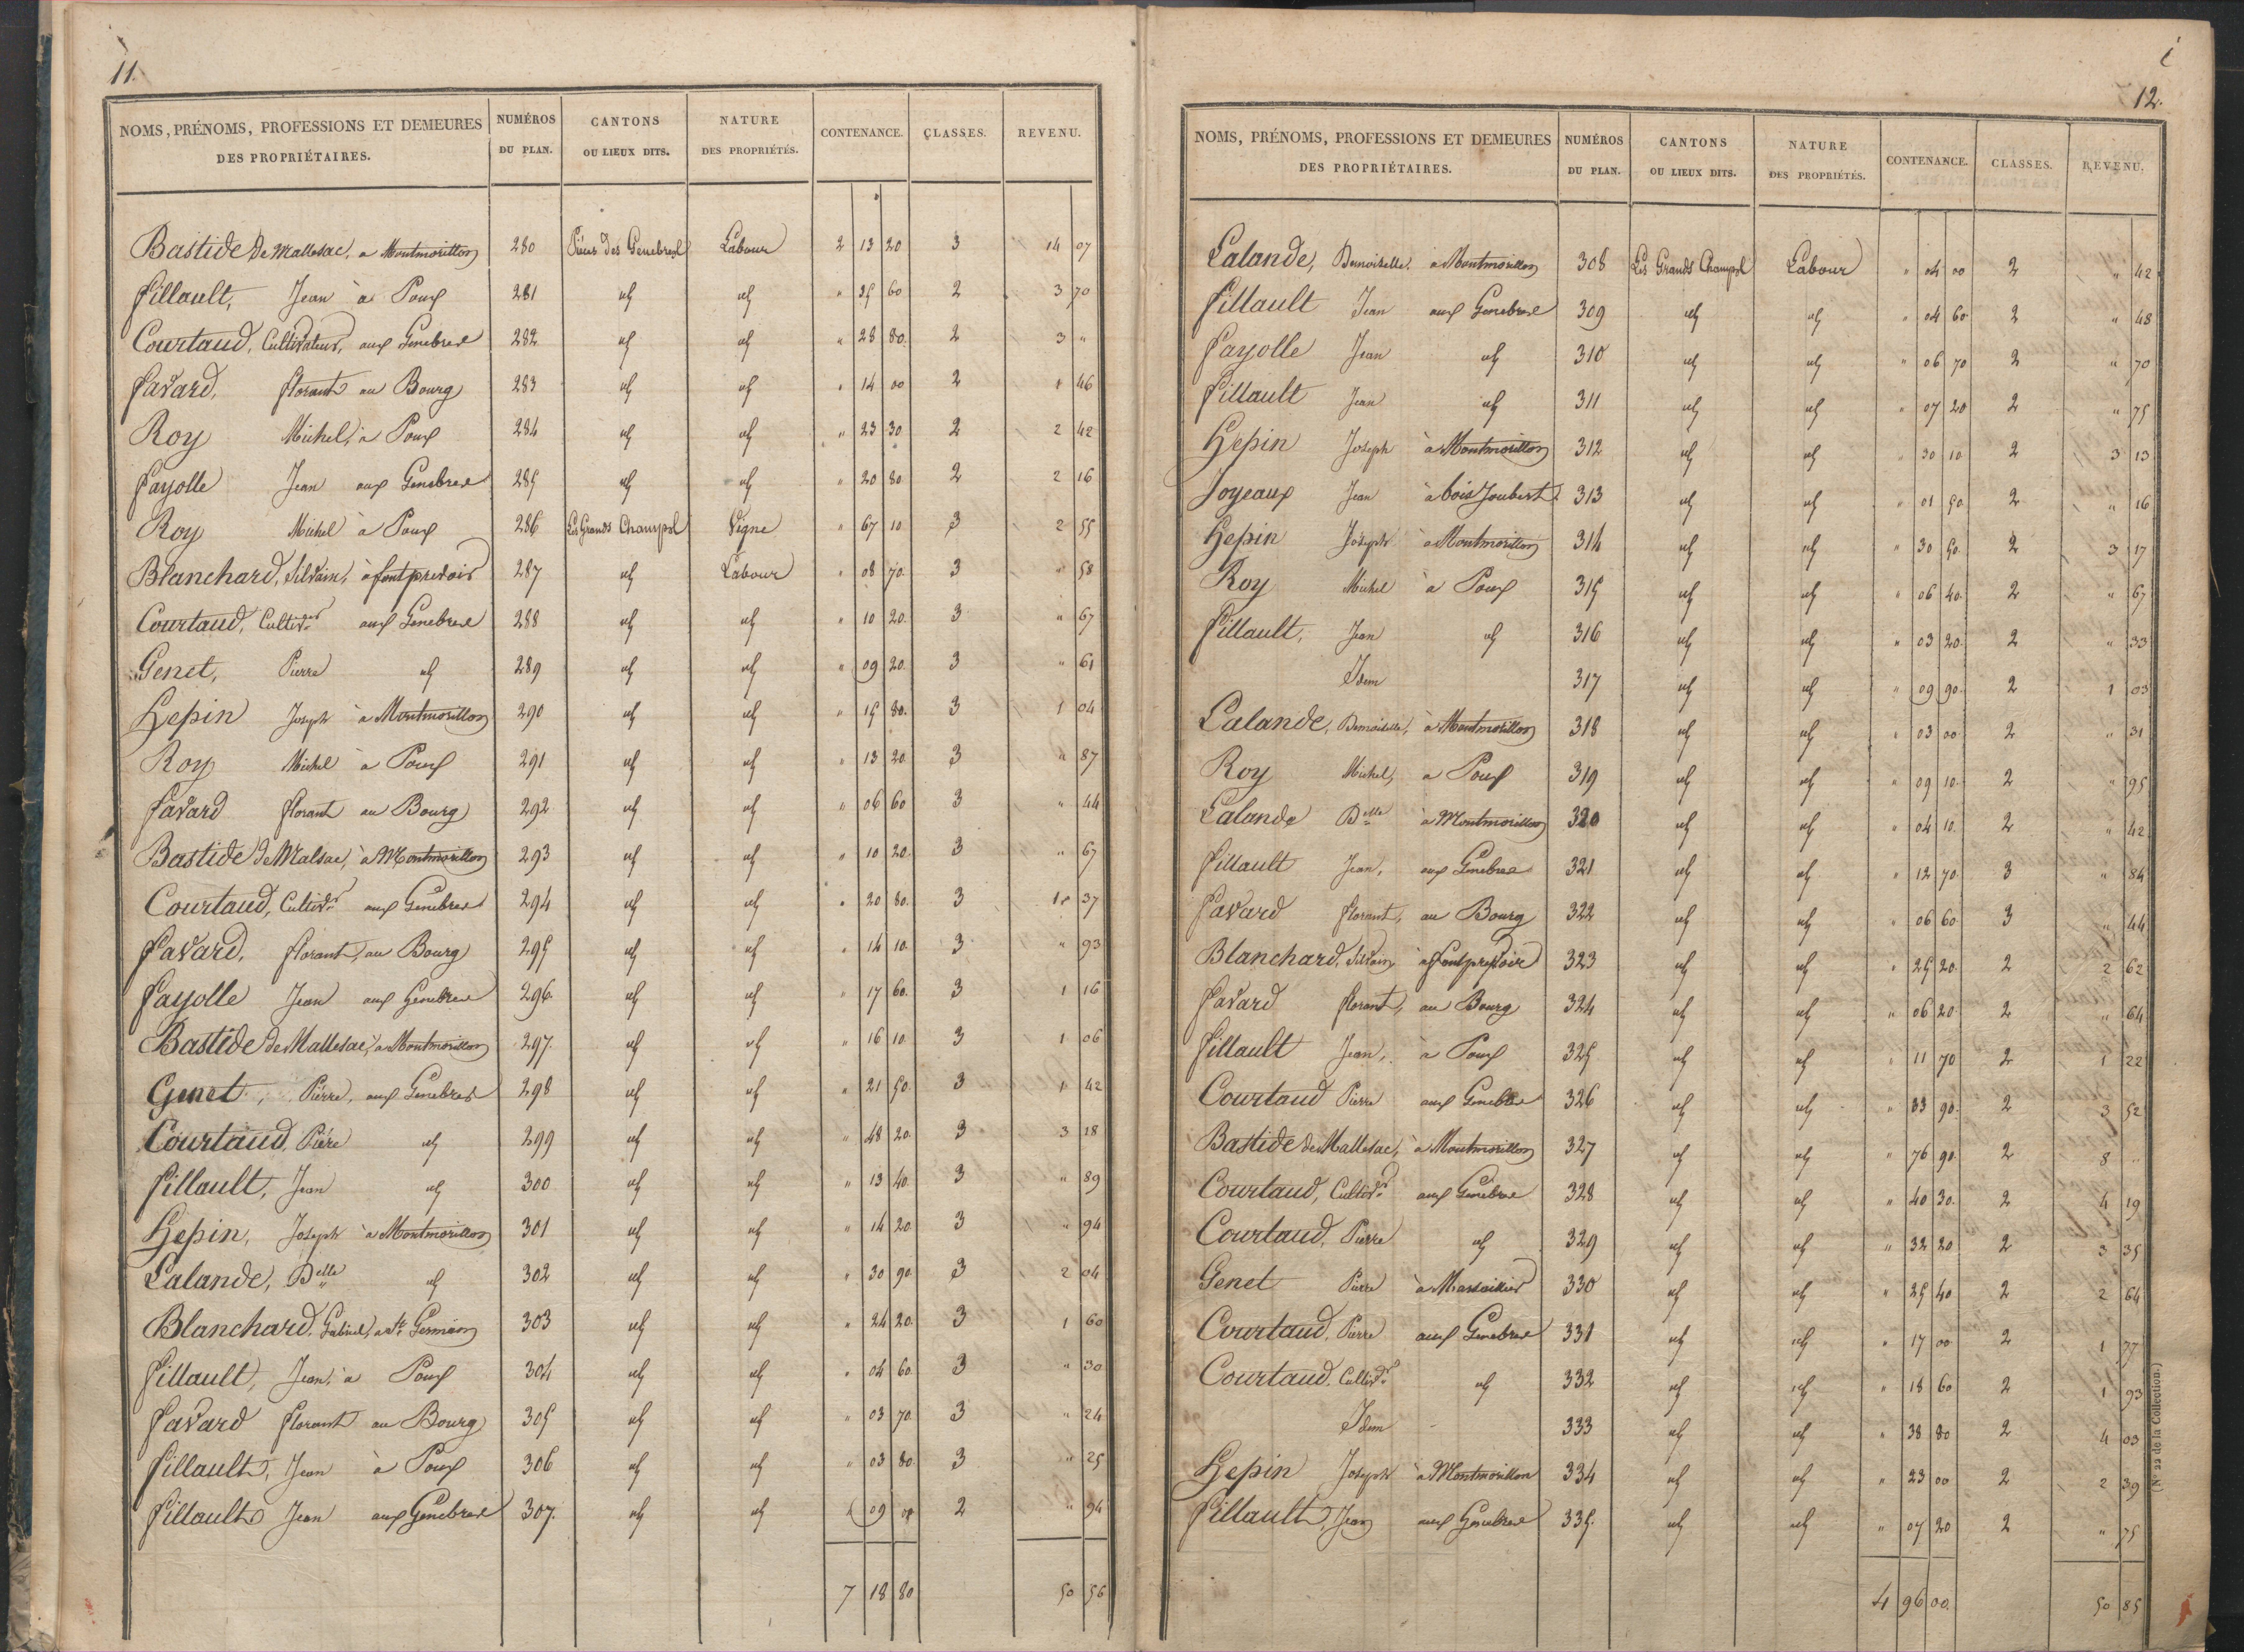 11.
NOMS, PRÉNOMS, PROFESSIONS ET DEMEURES DES PROPRIÉTAIRES. NUMÉROS DU PLAN. CANTONS OU LIEUX DITS. NATURE DES PROPRIÉTÉS. CONTENANCE. CLASSES. REVENU.
Bastide de Mallesac, a Montmorillon 280 Pièces des Genebres Labour 2 13 20 3 14 07
fillault, Jean à Poux 281 id id " 35 60 2 3 70
Courtaud, Cultivateur, aux Genebres 282 id id " 28 80 2 3 "
favard, florant au Bourg 283 id id " 14 00 2 1 46
Roy Michel, à Poux 284 id id " 23 30 2 2 42
fayolle Jean aux Genebres 285 id id " 20 80 2 2 16
Roy Michel à Poux 286 Les Grands Champs Vigne " 67 10 3 2 55
Blanchard, Silvain, à fontprevoir 287 id Labour " 08 70 3 " 58
Courtaud, Cultivr aux Genebres 288 id id " 10 20 3 " 67
Genet, Pierre id 289 id id " 09 20 3 " 61
Hepin Joseph à Montmorillon 290 id id " 15 80 3 1 04
Roy Michel à Poux 291 id id " 13 20 3 " 87
favard florant au Bourg 292 id id " 06 60 3 " 44
Bastide de Malsac, à Montmorillon 293 id id " 10 20 3 " 67
Courtaud, Cultivr aux Genebres 294 id id " 20 80 3 1 37
favard, florant, au Bourg 295 id id " 14 10 3 " 93
fayolle Jean aux Genebres 296 id id " 17 60 3 1 16
Bastide de Mallesac, a Montmorillon 297 id id " 16 10 3 1 06
Genet, Pierre, aux Genebres 298 id id " 21 50 3 1 42
Courtaud, Pière id 299 id id " 48 20 3 3 18
fillault, Jean id 300 id id " 13 40 3 " 89
Hepin, Joseph à Montmorillon 301 id id " 14 20 3 " 94
Lalande, Delle id 302 id id " 30 90 3 2 04
Blanchard, Gabriel, a St Germain 303 id id " 24 20 3 1 60
fillault, Jean, à Poux 304 id id " 04 60 3 " 30
favard florant au Bourg 305 id id " 03 70 3 " 24
fillault, Jean à Poux 306 id id " 03 80 3 " 25
fillault Jean aux Genebres 307. id id " 09 00 2 " 94
7 18 80 50 56
12.
NOMS, PRÉNOMS, PROFESSIONS ET DEMEURES DES PROPRIÉTAIRES. NUMÉROS DU PLAN. CANTONS OU LIEUX DITS. NATURE DES PROPRIÉTÉS. CONTENANCE. CLASSES. REVENU.
Lalande, Demoiselle, a Montmorillon 308 Les Grands Champs Labour " 04 00 2 " 42
fillault Jean aux Genebres 309 id id " 04 60 2 " 48
fayolle Jean id 310 id id " 06 70 2 " 70
fillault Jean id 311 id id " 07 20 2 " 75
Hepin Joseph à Montmorillon 312 id id " 30 10 2 3 13
Joyeaux Jean à bois Joubert 313 id id " 01 50 2 " 16
Hepin Joseph à Montmorillon 314 id id " 30 50 2 3 17
Roy Michel à Poux 315 id id " 06 40 2 " 67
fillault, Jean id 316 id id " 03 20 2 " 33
Idem 317 id id " 09 90 2 1 03
Lalande, Demoiselle, à Montmorillon 318 id id " 03 00 2 " 31
Roy Michel, a Poux 319 id id " 09 10 2 " 95
Lalande Delle à Montmorillon 320 id id " 04 10 2 " 42
fillault Jean, aux Genebres 321 id id " 12 70 3 " 84
favard florant, au Bourg 322 id id " 06 60 3 " 44
Blanchard, Silvain à fontprevoir 323 id id " 25 20 2 2 62
favard florant, au Bourg 324 id id " 06 20 2 " 64
fillault Jean, à Poux 325 id id " 11 70 2 1 22
Courtaud Pierre aux Genebres 326 id id " 33 90 2 3 52
Bastide de Mallesac, à Montmorillon 327 id id " 76 90 2 8 "
Courtaud, Cultivr aux Genebres 328 id id " 40 30 2 4 19
Courtaud, Pierre id 329 id id " 32 20 2 3 35
Genet Pierre à 330 id id " 25 40 2 2 64
Courtaud, Pierre aux Genebres 331 id id " 17 00 2 1 77
Courtaud, Cultivr id 332 id id " 18 60 2 1 93
Idem 333 id id " 38 80 2 4 03
Hepin Joseph à Montmorillon 334 id id " 23 00 2 2 39
fillault, Jean aux Genebres 335. id id " 07 20 2 " 75
4 96 00 50 85
(N° 22 de la Collection.)